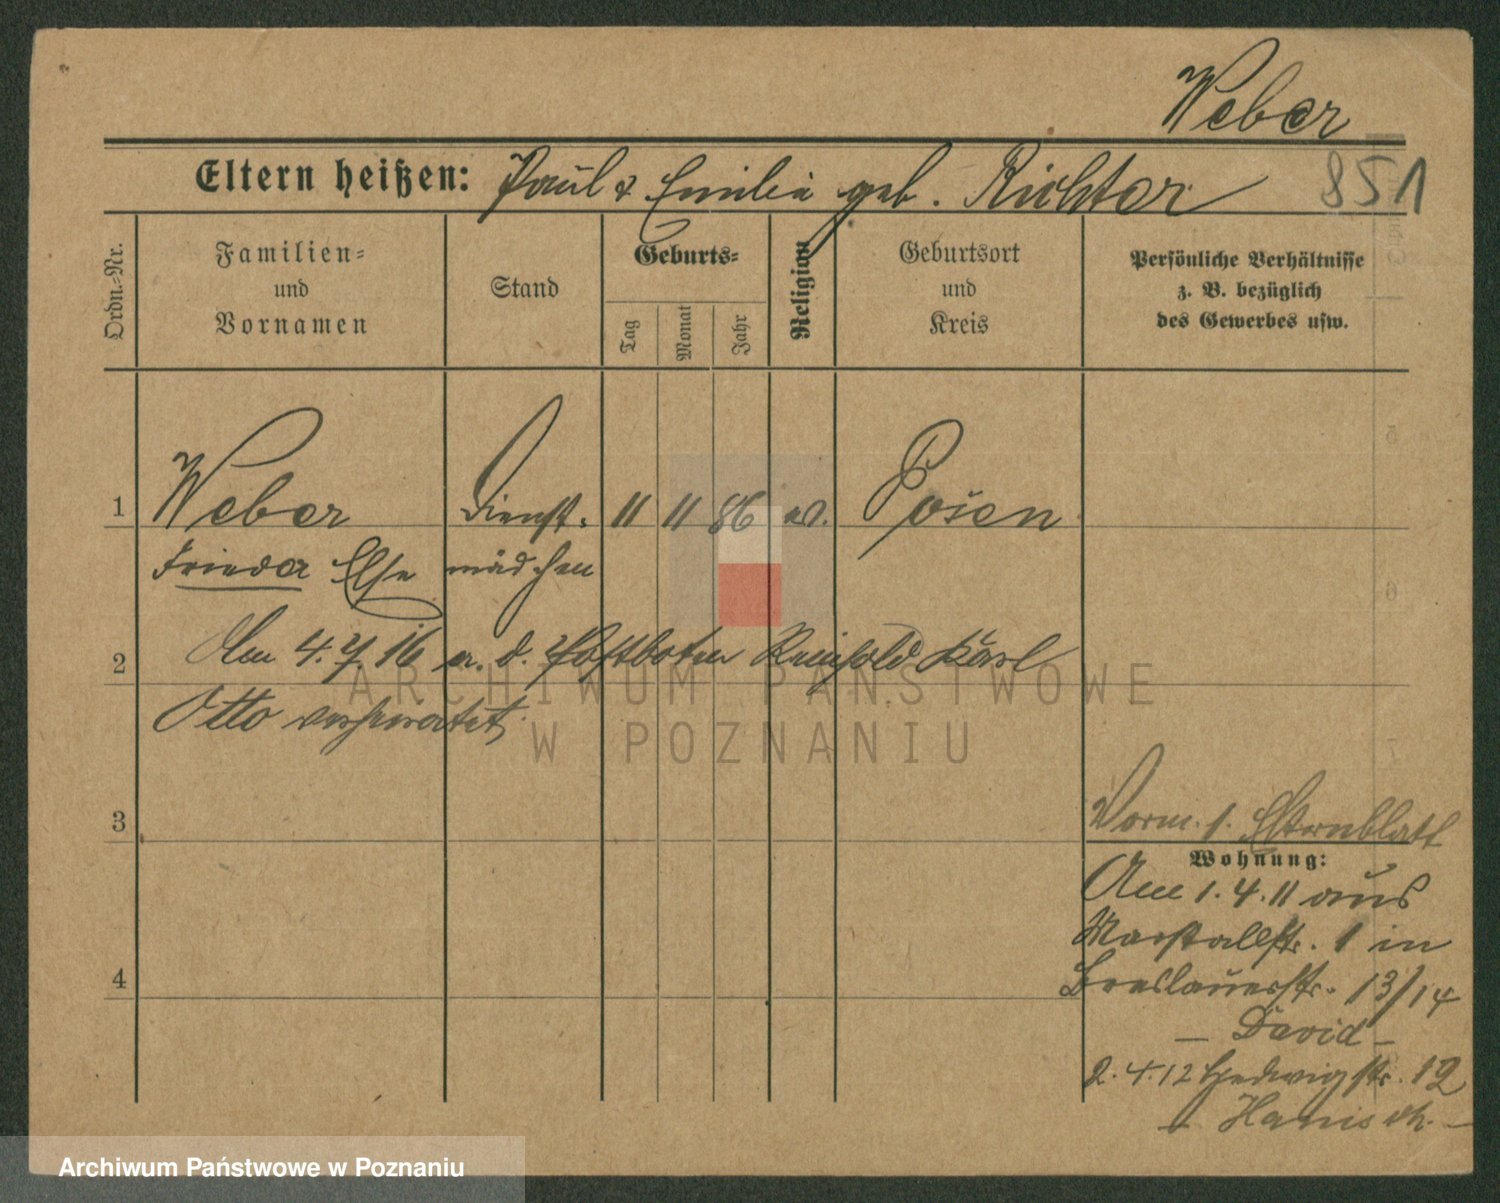 Weber
851
Eltern heißen: Paul & Emilie geb. Richter
Ordn.-Nr.
Familien-
und
Vornamen
Stand
Geburts-
Tag
Monat
Jahr
Religion
Geburtsort
und
Kreis
Persönliche Verhältnisse
z. B. bezüglich
des Gewerbes usw.
1 Weber Dienst- 11 11 86 ev. Posen
Frieda Else mädchen
2 Am 4.7.16 m. d. Postboten Reinhold Karl
Otto verheiratet
3
4
Vorm. s. Elternblatt
Wohnung:
Am 1.4.11 aus
Marstallstr. 1 in
Breslauerstr. 13/14
- David -
2.4.12 Hedwigstr. 12
- Hanisch. -
ARCHIWUM PAŃSTWOWE
W POZNANIU
Archiwum Państwowe w Poznaniu